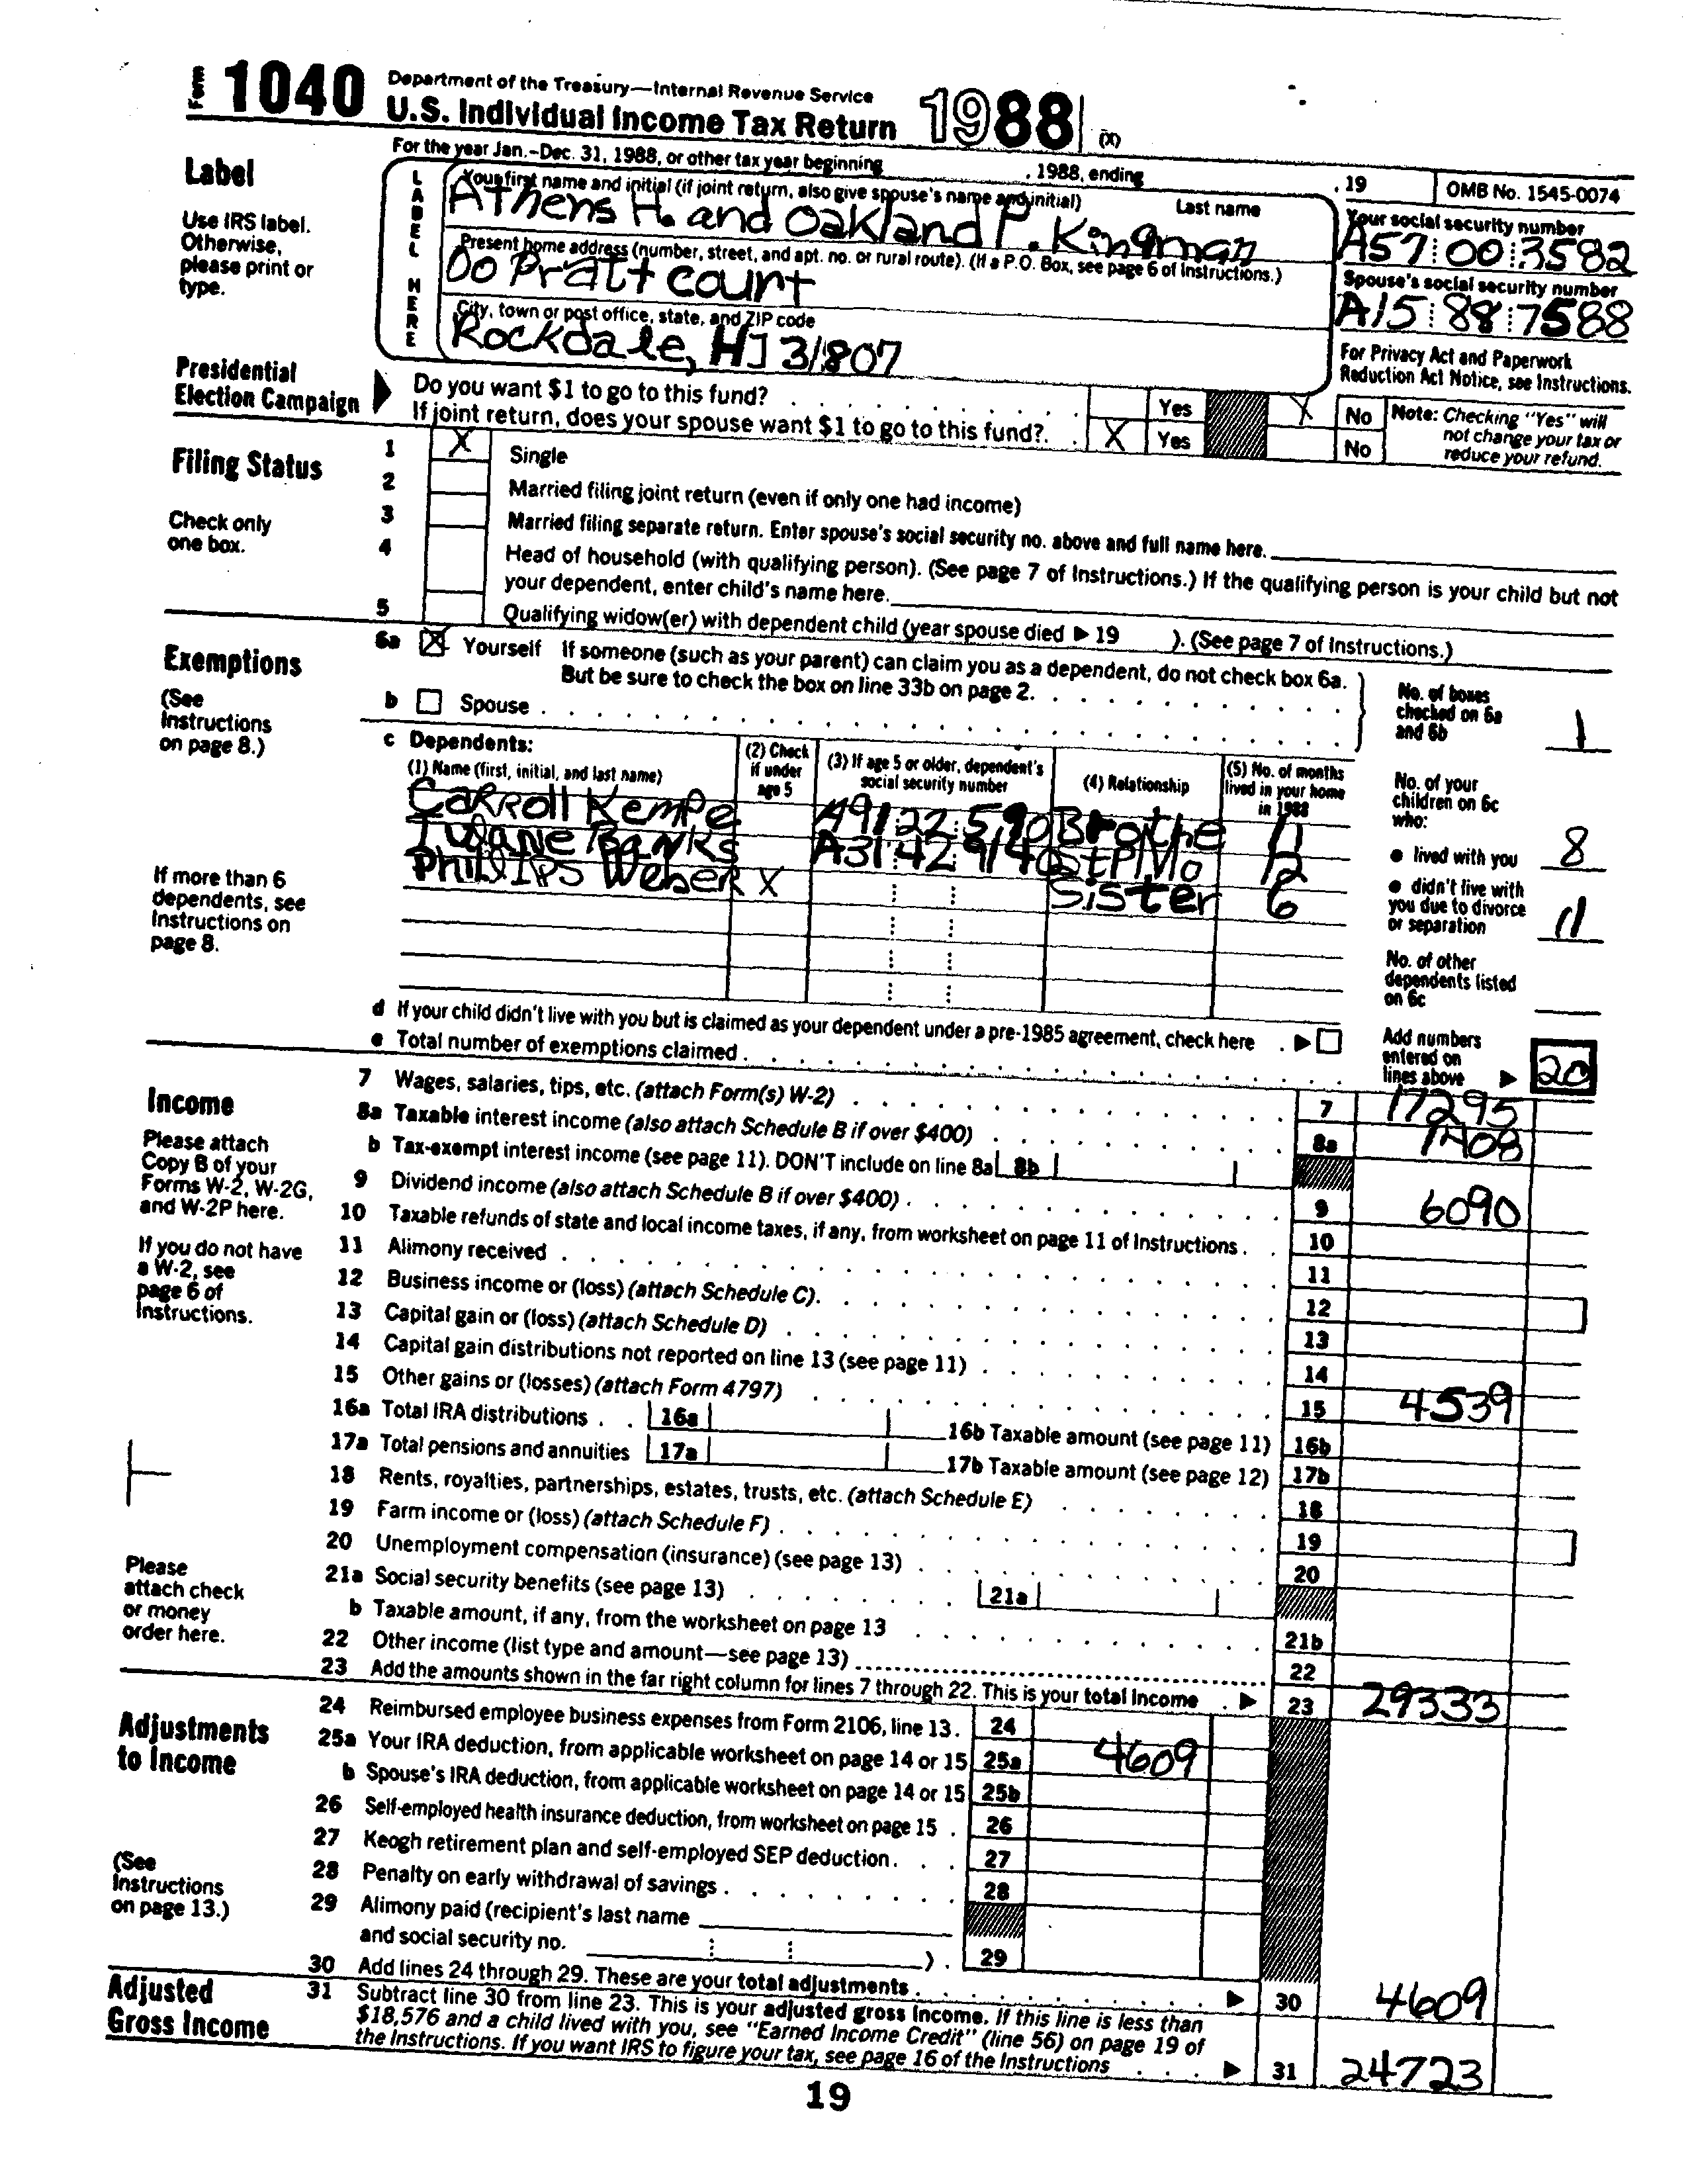 Form 1040 Department of the Treasury—Internal Revenue Service
U.S. Individual Income Tax Return 1988 (X)
For the year Jan.-Dec. 31, 1988, or other tax year beginning , 1988, ending , 19 OMB No. 1545-0074
Label
Use IRS label. Otherwise, please print or type.
LABEL HERE
Your first name and initial (if joint return, also give spouse's name and initial) Last name
Athens H. and Oakland P. Kingman
Your social security number
A57 00 3582
Present home address (number, street, and apt. no. or rural route). (If a P.O. Box, see page 6 of Instructions.)
DO Pratt court
Spouse's social security number
A15 88 7588
City, town or post office, state, and ZIP code
Rockdale, HJ 31807
For Privacy Act and Paperwork Reduction Act Notice, see Instructions.
Presidential Election Campaign
Do you want $1 to go to this fund? Yes X No
If joint return, does your spouse want $1 to go to this fund?. X Yes No
Note: Checking "Yes" will not change your tax or reduce your refund.
Filing Status
Check only one box.
1 X Single
2 Married filing joint return (even if only one had income)
3 Married filing separate return. Enter spouse's social security no. above and full name here.
4 Head of household (with qualifying person). (See page 7 of Instructions.) If the qualifying person is your child but not
your dependent, enter child's name here.
5 Qualifying widow(er) with dependent child (year spouse died ▶ 19 ). (See page 7 of Instructions.)
Exemptions
(See Instructions on page 8.)
6a X Yourself If someone (such as your parent) can claim you as a dependent, do not check box 6a.
But be sure to check the box on line 33b on page 2.
b Spouse
No. of boxes checked on 6a and 6b 1
c Dependents:
(1) Name (first, initial, and last name) (2) Check if under age 5 (3) If age 5 or older, dependent's social security number (4) Relationship (5) No. of months lived in your home in 1988
Carroll Kempe A91 22 590 Brothe 11
Tulane Banks A31 42 9140 StPMo 12
Phillips Weber X Sister 6
No. of your children on 6c who:
● lived with you 8
● didn't live with you due to divorce or separation 11
No. of other dependents listed on 6c
If more than 6 dependents, see Instructions on page 8.
d If your child didn't live with you but is claimed as your dependent under a pre-1985 agreement, check here ▶
e Total number of exemptions claimed
Add numbers entered on lines above ▶ 20
Income
Please attach Copy B of your Forms W-2, W-2G, and W-2P here.
If you do not have a W-2, see page 6 of Instructions.
Please attach check or money order here.
7 Wages, salaries, tips, etc. (attach Form(s) W-2) 7 17295
8a Taxable interest income (also attach Schedule B if over $400) 8a 1408
b Tax-exempt interest income (see page 11). DON'T include on line 8a 8b
9 Dividend income (also attach Schedule B if over $400) 9 6090
10 Taxable refunds of state and local income taxes, if any, from worksheet on page 11 of Instructions 10
11 Alimony received 11
12 Business income or (loss) (attach Schedule C). 12
13 Capital gain or (loss) (attach Schedule D) 13
14 Capital gain distributions not reported on line 13 (see page 11) 14
15 Other gains or (losses) (attach Form 4797) 15 4539
16a Total IRA distributions 16a 16b Taxable amount (see page 11) 16b
17a Total pensions and annuities 17a 17b Taxable amount (see page 12) 17b
18 Rents, royalties, partnerships, estates, trusts, etc. (attach Schedule E) 18
19 Farm income or (loss) (attach Schedule F) 19
20 Unemployment compensation (insurance) (see page 13) 20
21a Social security benefits (see page 13) 21a
b Taxable amount, if any, from the worksheet on page 13 21b
22 Other income (list type and amount—see page 13) 22
23 Add the amounts shown in the far right column for lines 7 through 22. This is your total income ▶ 23 29333
Adjustments to Income
(See Instructions on page 13.)
24 Reimbursed employee business expenses from Form 2106, line 13. 24
25a Your IRA deduction, from applicable worksheet on page 14 or 15 25a 4609
b Spouse's IRA deduction, from applicable worksheet on page 14 or 15 25b
26 Self-employed health insurance deduction, from worksheet on page 15 26
27 Keogh retirement plan and self-employed SEP deduction 27
28 Penalty on early withdrawal of savings 28
29 Alimony paid (recipient's last name
and social security no. ) 29
30 Add lines 24 through 29. These are your total adjustments ▶ 30 4609
Adjusted Gross Income
31 Subtract line 30 from line 23. This is your adjusted gross income. If this line is less than
$18,576 and a child lived with you, see "Earned Income Credit" (line 56) on page 19 of
the Instructions. If you want IRS to figure your tax, see page 16 of the Instructions ▶ 31 24723
19